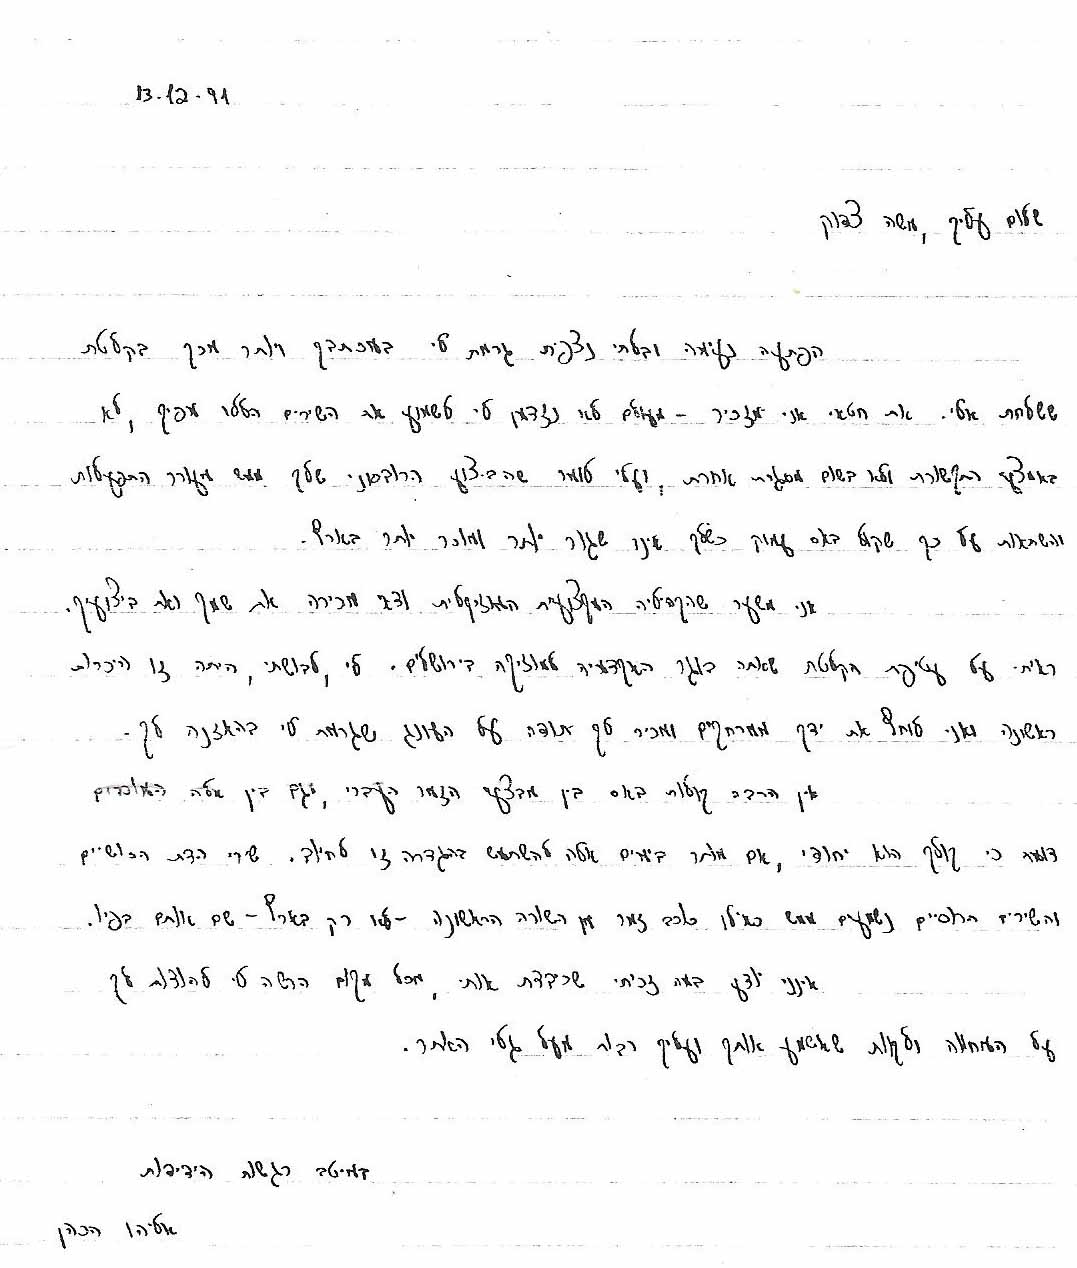 13-12-91
שלום עליך, משה צדוק
הפתעה נעימה ובלתי נצפית גרמת לי במכתבך ויותר מכך בקלטת
ששלחת אלי. את חטאי אני מזכיר – מעולם לא נזדמן לי לשמוע את השירים הללו מפיך, לא
באמצעי התקשורת ולא בשום מסגרת אחרת, ועלי לומר שהביצוע הרובסוני שלך ממש מעורר התפעלות
והשתאות על כך שקול באס עמוק כשלך אינו שגור יותר ומוכר יותר בארץ.
אני משער שהקהיליה המקצועית המוזיקלית ודאי מכירה את שמך ואת ביצועיך.
ראיתי על עטיפת הקלטת שאתה בוגר האקדמיה למוזיקה בירושלים. לי, לבושתי, היתה זו היכרות
ראשונה ואני לוחץ את ידך ממרחקים ומכיר לך תודה על העונג שגרמת לי בהאזנה לך.
אין הרבה קולות באס בין מבצעי הזמר העברי, וגם בין אלה המוכרים
דומה כי קולך הוא יחודי, אם מותר בימים אלה להשתמש בהגדרה זו לחיוב. שירי הדת הכושיים
והשירים הרוסיים נשמעים ממש כאילו כוכב זמר מן השורה הראשונה – לא רק בארץ – שם אותם בפיו.
אינני יודע במה זכיתי שכיבדת אותי, מכל מקום הרשה לי להודות לך
על המחווה ולקוות שאשמע אותך ועליך רבות מעל גלי האתר.
במיטב רגשות הידידות
אליהו הכהן